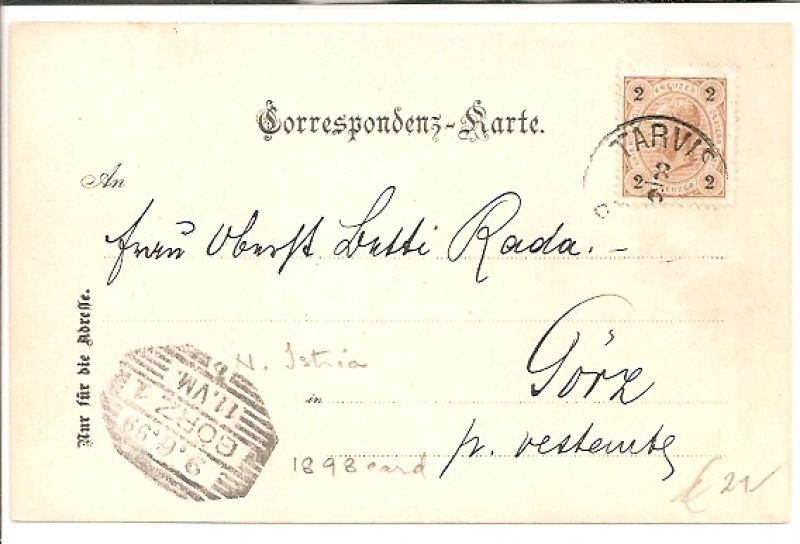 Correspondenz-Karte.
2 KREUZER 2
2 KREUZER 2
TARVIS
8
6
An
Frau Oberst Betti Rada.-
Nur für die Adresse.
N. Istria
Görz
in
GÖRZ 1
9.6.99
11.VM.
1898 card
p.
21